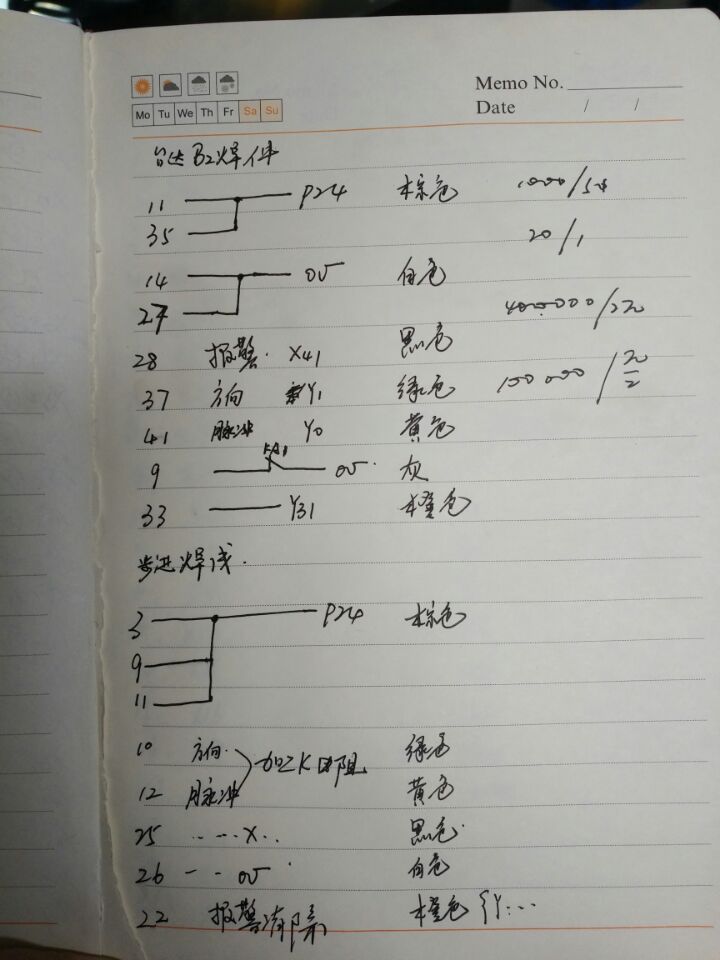 Memo No.
Mo Tu We Th Fr Sa Su
Date / /
台达B2焊件
11 P24 棕色 1000/50
35 20/1
14 0V 白色
27
4000000/220
28 报警 X41 黑色
37 方向 Y1 绿色 100000/
41 脉冲 Y0 黄色
9 KA1 0V 灰
33 Y31 橙色
步进焊线
3 P24 棕色
9
11
10 方向 加2K电阻 绿色
12 脉冲 黄色
25 - - - X . . 黑色
26 - - 0V 白色
22 报警清除 橙色 Y...